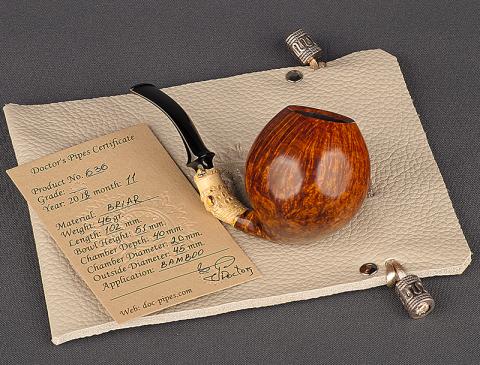 Doctor's Pipes Certificate
Product No. 636
Grade:
Year: 2018 month: 11
Material: BRIAR
Weight: 46 gr.
Length: 102 mm.
Bowl Height: 51 mm.
Chamber Depth: 40 mm.
Chamber Diameter: 20 mm.
Outside Diameter: 45 mm.
Application: BAMBOO
Doctor
Web: doc-pipes.com